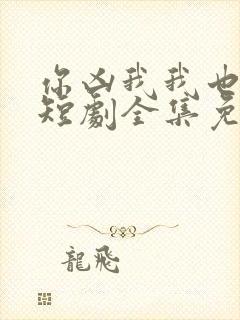 你凶我我也
短劇全集免
龍飛